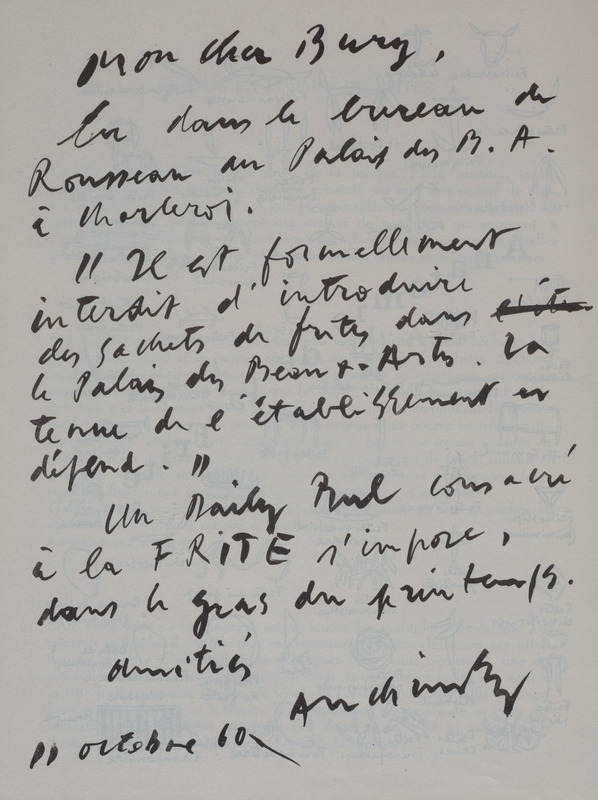 Mon cher Bury,
Lu dans le bureau de
Rousseau au Palais des B. A.
à Charleroi.
" Il est formellement
interdit d'introduire
des sachets de frites dans
le Palais des Beaux-Arts. La
tenue de l'établissement en
dépend. "
Un Daily Bul consacré
à la FRITE s'impose,
dans le gras du printemps.
amitiés
Alechinsky
11 octobre 60